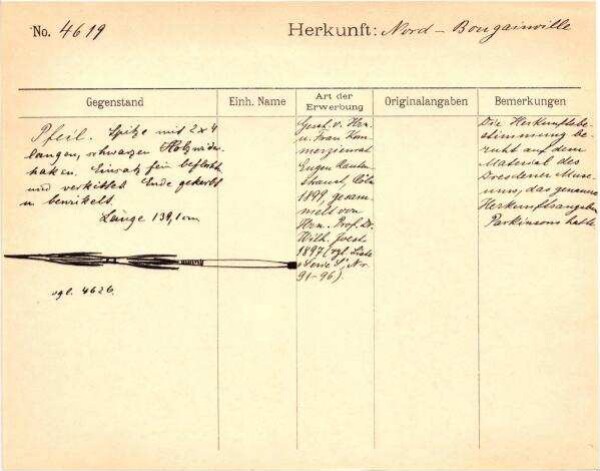 No. 4619
Herkunft: Nord - Bougainville
Gegenstand
Einh. Name
Art der Erwerbung
Originalangaben
Bemerkungen
Pfeil. Spitze mit 2 x 4
langen, schwarzen Holzwider-
haken. Einsatz fein beflochten
und verkittet. Ende gekerbt
u. bewickelt.
Länge 139,1 cm
vgl. 4626.
Gesch. v. Hrn.
u. Frau Kom-
merzienrat
Eugen Rauten-
strauch, Cöln
1899, gesam-
melt von
Hrn. Prof. Dr.
Wilh. Joest
1897 (vgl. Liste
Serie
91-96).
Die Herkunftsbe-
stimmung be-
ruht auf dem
Material des
Dresdener Muse-
ums, das genaue
Herkunftsangaben
Parkinsons hatte.